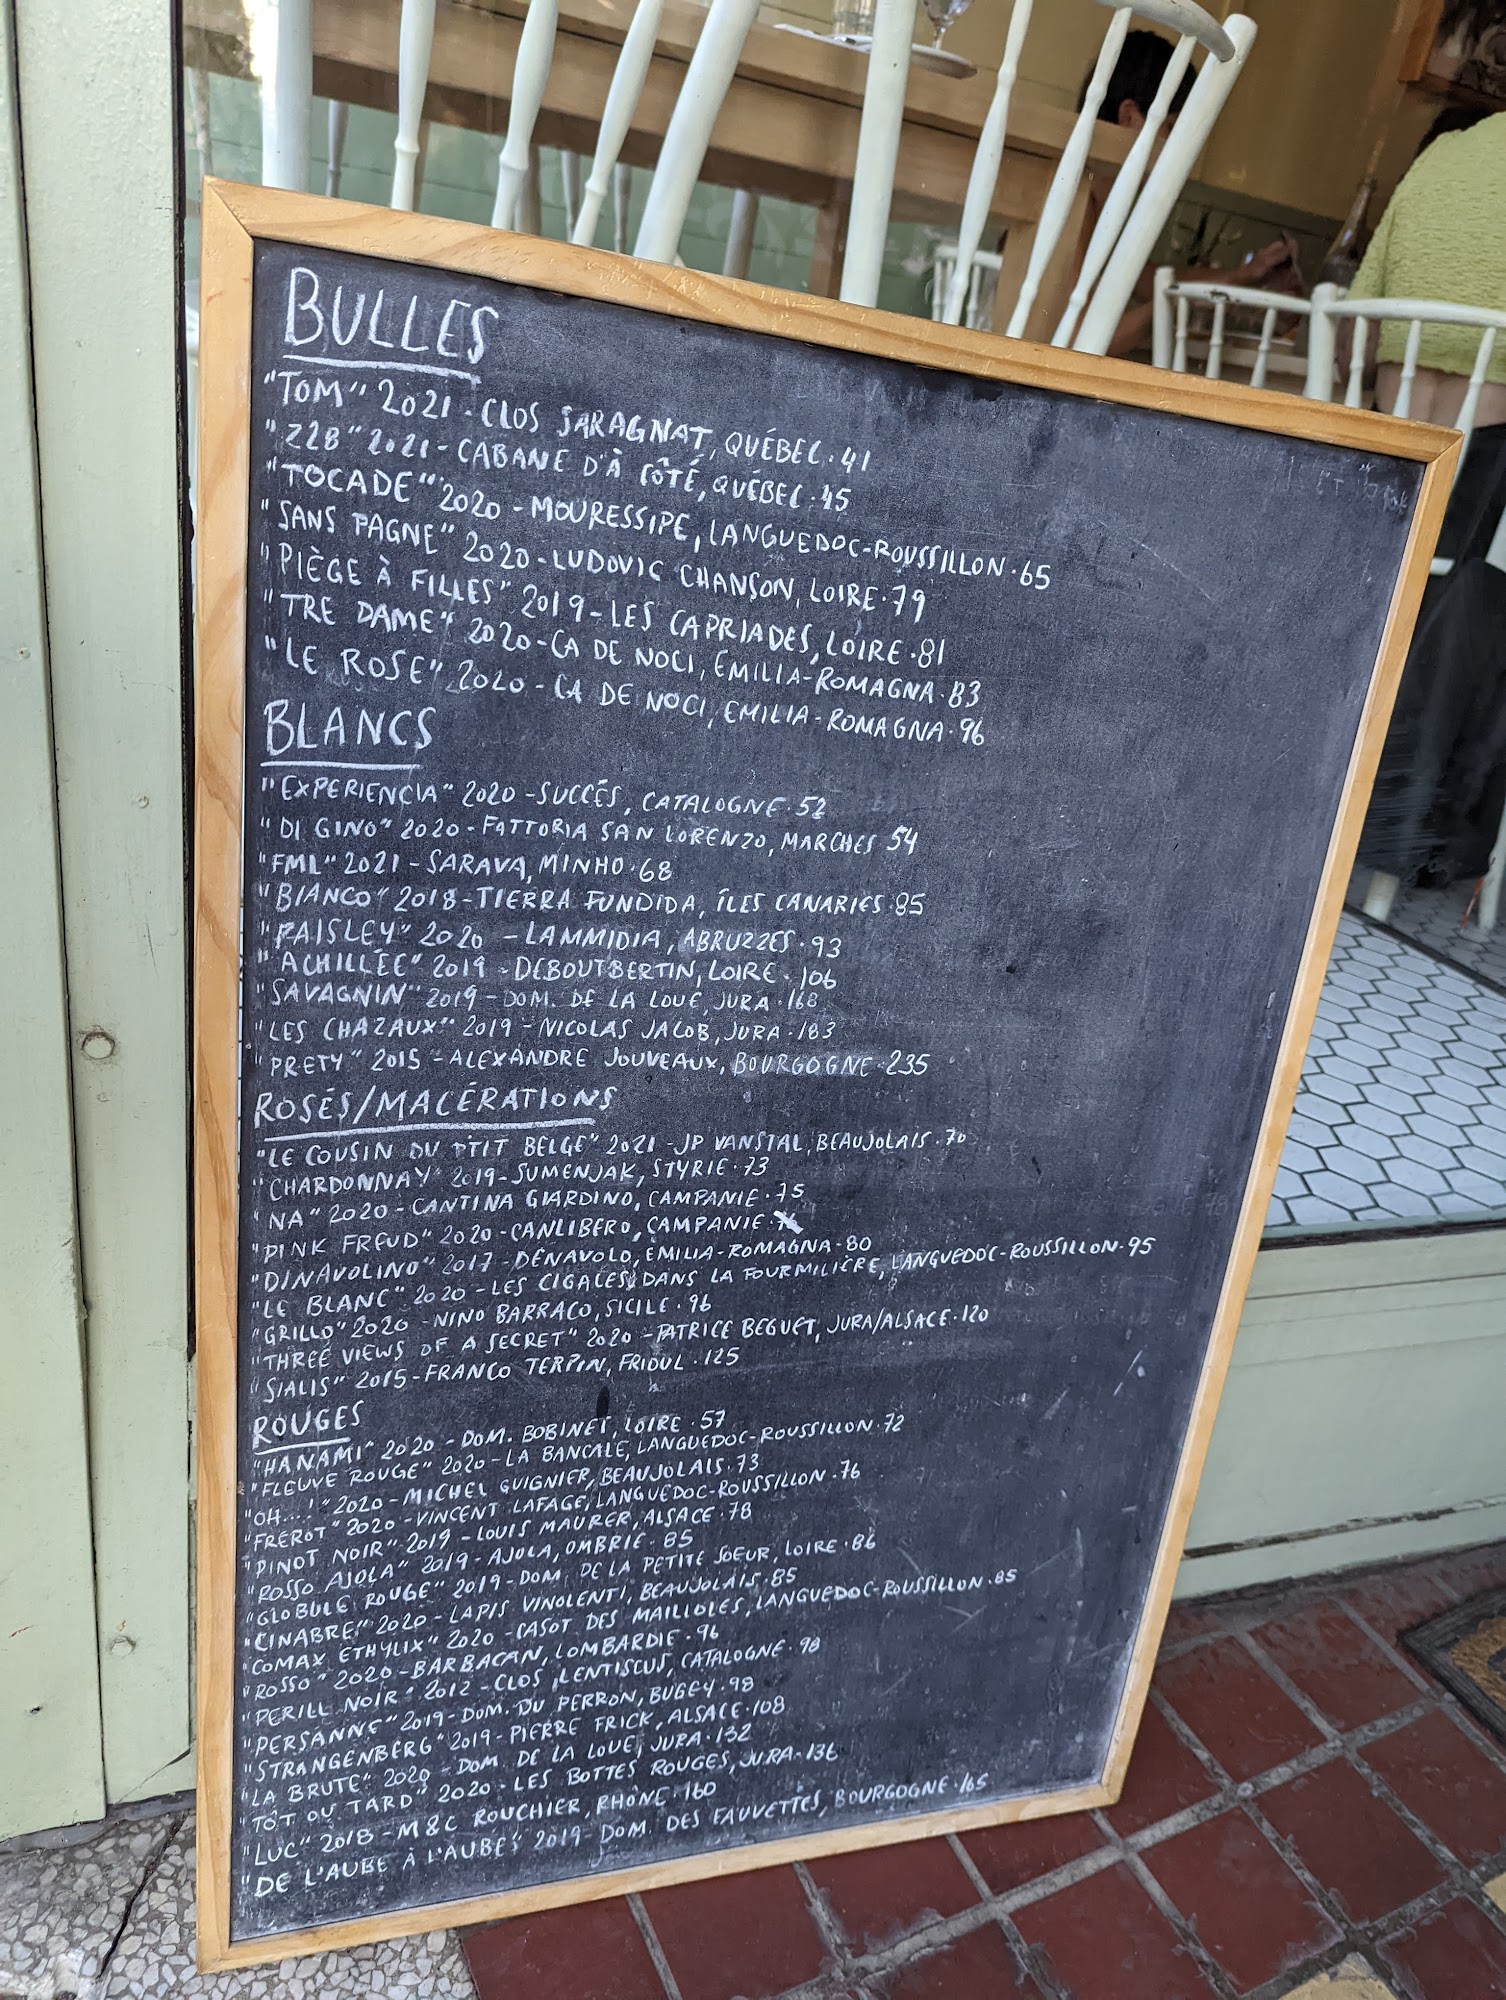 BULLES
"TOM" 2021 - CLOS SARAGNAT, QUÉBEC · 41
"Z2B" 2021 - CABANE D'À CÔTÉ, QUÉBEC · 45
"TOCADE" 2020 - MOURESSIPE, LANGUEDOC-ROUSSILLON · 65
"SANS PAGNE" 2020 - LUDOVIC CHANSON, LOIRE · 79
"PIÈGE À FILLES" 2019 - LES CAPRIADES, LOIRE · 81
"TRE DAME" 2020 - CA DE NOCI, EMILIA-ROMAGNA · 83
"LE ROSE" 2020 - CA DE NOCI, EMILIA-ROMAGNA · 96
BLANCS
"EXPERIENCIA" 2020 - SUCCÉS, CATALOGNE · 52
"DI GINO" 2020 - FATTORIA SAN LORENZO, MARCHES 54
"FML" 2021 - SARAVA, MINHO · 68
"BIANCO" 2018 - TIERRA FUNDIDA, ÎLES CANARIES · 85
"PAISLEY" 2020 - LAMMIDIA, ABRUZZES · 93
"ACHILLÉE" 2019 - DEBOUTBERTIN, LOIRE · 106
"SAVAGNIN" 2019 - DOM. DE LA LOUE, JURA · 168
"LES CHAZAUX" 2019 - NICOLAS JACOB, JURA · 183
"PRETY" 2015 - ALEXANDRE JOUVEAUX, BOURGOGNE · 235
ROSÉS/MACÉRATIONS
"LE COUSIN DU P'TIT BELGE" 2021 - JP VANSTAL, BEAUJOLAIS · 70
"CHARDONNAY" 2019 - SUMENJAK, STYRIE · 73
"NA" 2020 - CANTINA GIARDINO, CAMPANIE · 75
"PINK FREUD" 2020 - CANLIBERO, CAMPANIE ·
"DINAVOLINO" 2017 - DENAVOLO, EMILIA-ROMAGNA · 80
"LE BLANC" 2020 - LES CIGALES DANS LA FOURMILIÈRE, LANGUEDOC-ROUSSILLON · 95
"GRILLO" 2020 - NINO BARRACO, SICILE · 96
"THREE VIEWS OF A SECRET" 2020 - PATRICE BEGUET, JURA/ALSACE · 120
"SIALIS" 2015 - FRANCO TERPIN, FRIOUL · 125
ROUGES
"HANAMI" 2020 - DOM. BOBINET, LOIRE · 57
"FLEUVE ROUGE" 2020 - LA BANCALE, LANGUEDOC-ROUSSILLON · 72
"OH....!" 2020 - MICHEL GUIGNIER, BEAUJOLAIS · 73
"FREROT" 2020 - VINCENT LAFAGE, LANGUEDOC-ROUSSILLON · 76
"PINOT NOIR" 2019 - LOUIS MAURER, ALSACE · 78
"ROSSO AJOLA" 2019 - AJOLA, OMBRIE · 85
"GLOBULE ROUGE" 2019 - DOM. DE LA PETITE SOEUR, LOIRE · 86
"CINABRE" 2020 - LAPIS VINOLENTI, BEAUJOLAIS · 85
"COMAX ETHYLIX" 2020 - CASOT DES MAILLOLES, LANGUEDOC-ROUSSILLON · 85
"ROSSO" 2020 - BARBACAN, LOMBARDIE · 96
"PERILL NOIR" 2012 - CLOS LENTISCUS, CATALOGNE · 98
"PERSANNE" 2019 - DOM. DU PERRON, BUGEY · 98
"STRANGENBERG" 2019 - PIERRE FRICK, ALSACE · 108
"LA BRUTE" 2020 - DOM. DE LA LOUE, JURA · 132
"TÔT OU TARD" 2020 - LES BOTTES ROUGES, JURA · 136
"LUC" 2018 - M&C ROUCHIER, RHÔNE · 160
"DE L'AUBE À L'AUBE" 2019 - DOM. DES FAUVETTES, BOURGOGNE · 165